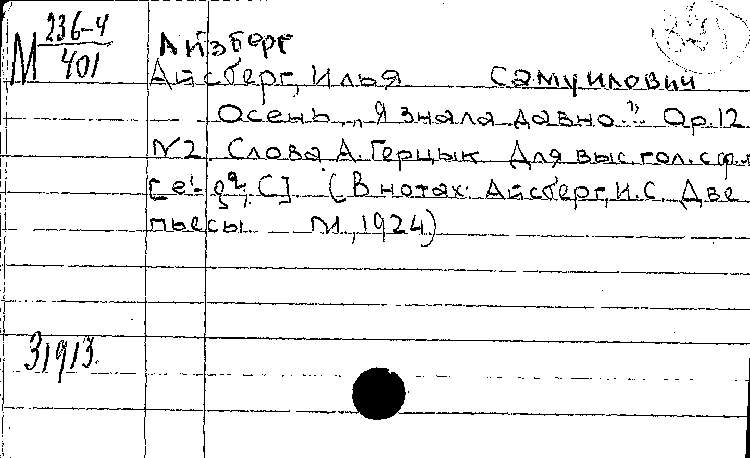 М 236-4
401
Айзберг
Айсберг, Илья Самуилович
Осень „Я знала давно.." Ор.12
N2. Слова А. Герцык. Для выс. гол. с ф.п
[e¹- C] (В нотах: Айсберг, И.С. Две
пьесы М., 1924)
31913.